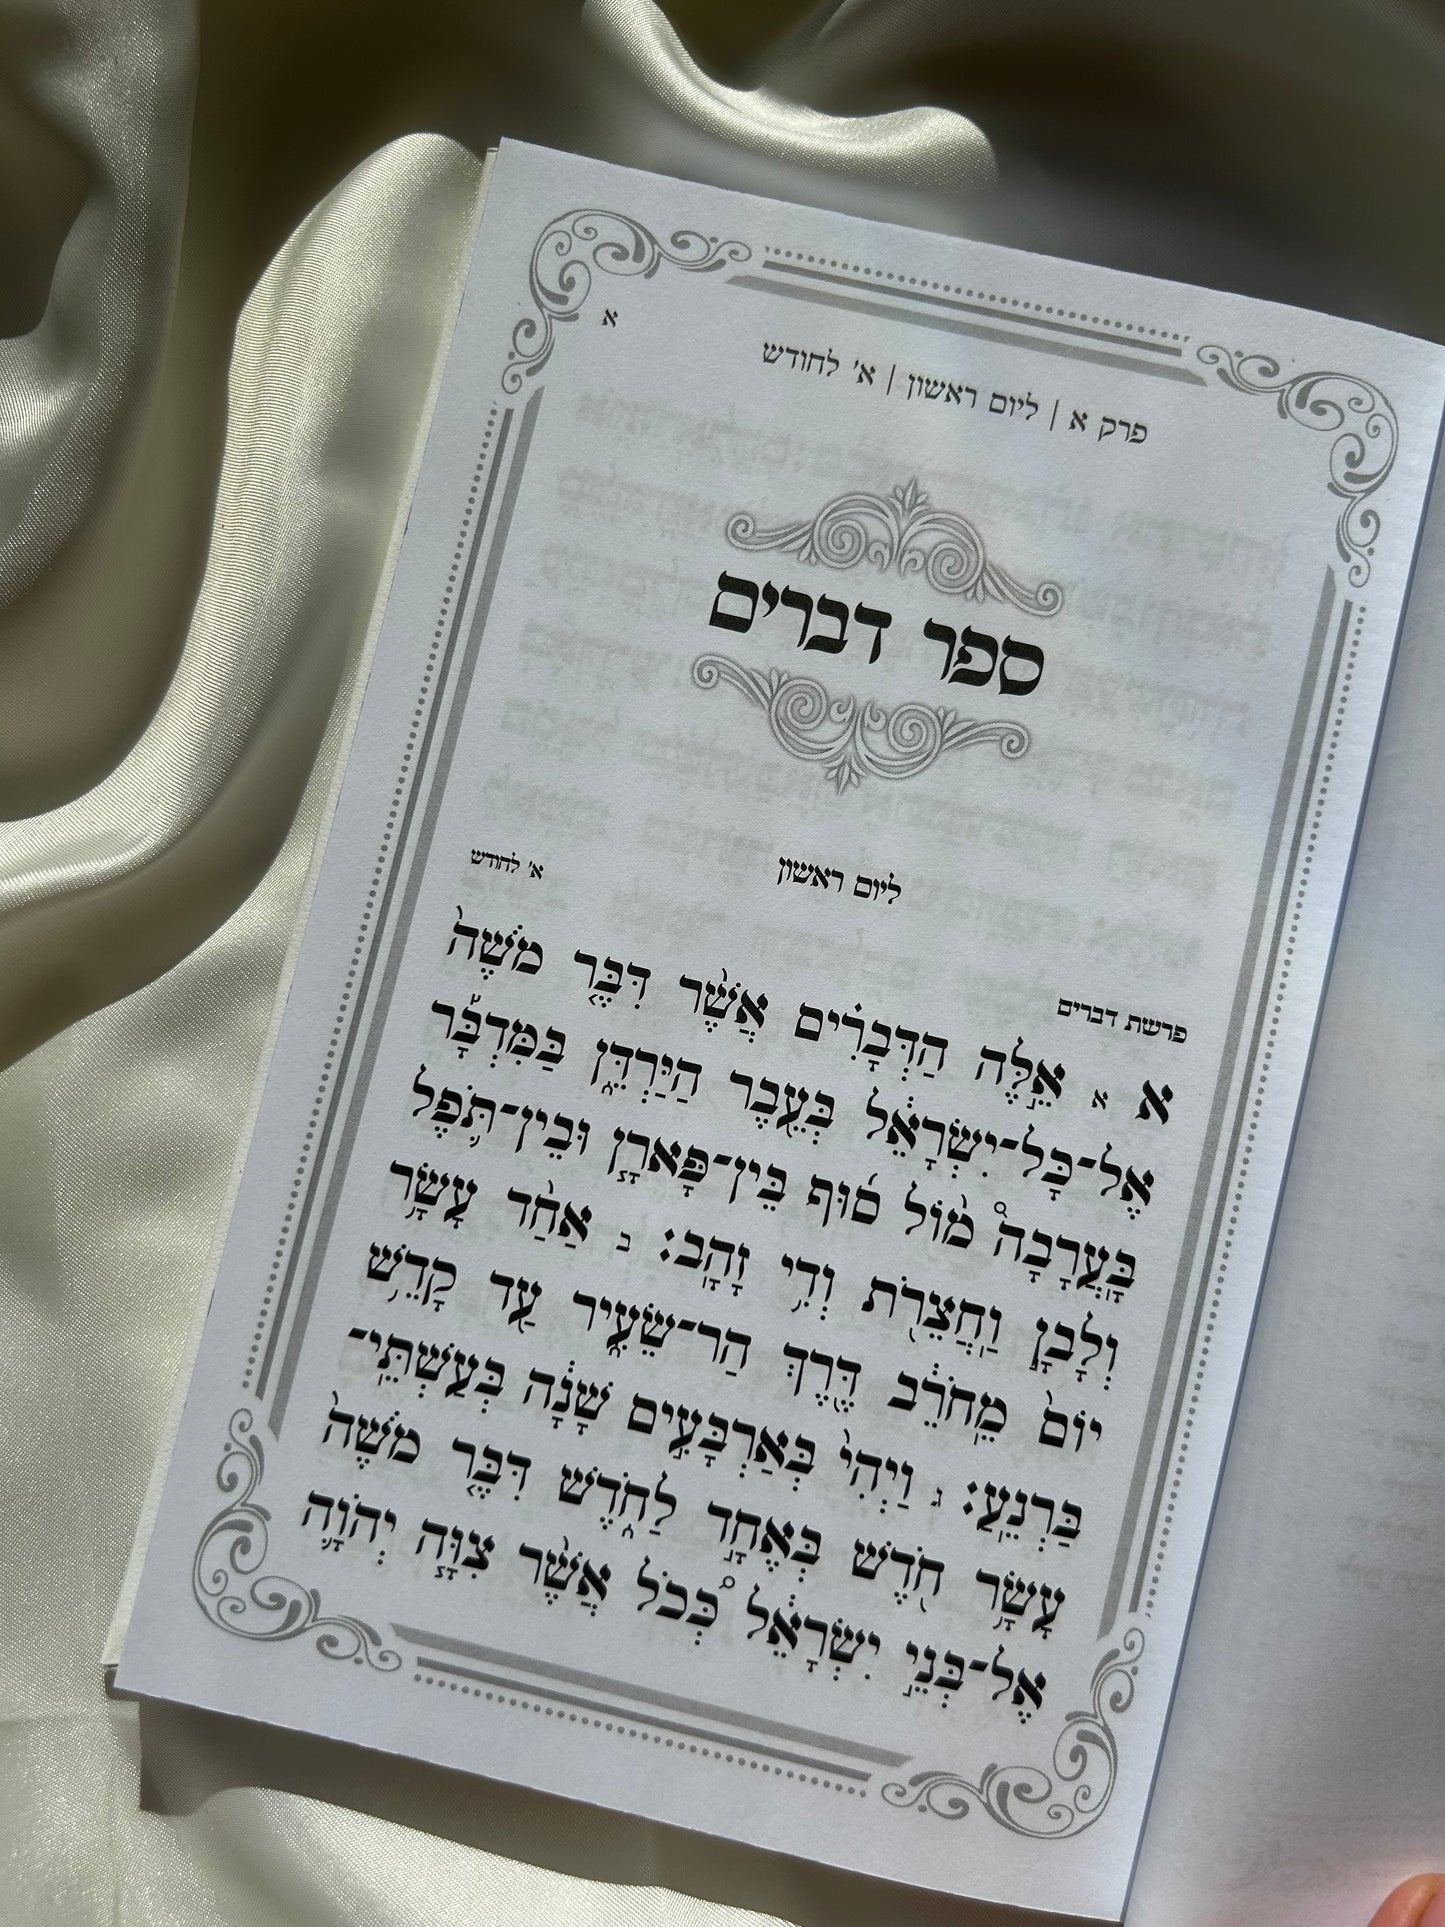 א
פרק א | ליום ראשון | א' לחודש
ספר דברים
ליום ראשון
א' לחודש
פרשת דברים
א א אֵ֣לֶּה הַדְּבָרִ֗ים אֲשֶׁ֨ר דִּבֶּ֤ר מֹשֶׁה֙
אֶל־כָּל־יִשְׂרָאֵ֔ל בְּעֵ֖בֶר הַיַּרְדֵּ֑ן בַּמִּדְבָּ֡ר
בָּֽעֲרָבָה֩ מ֨וֹל ס֜וּף בֵּין־פָּארָ֧ן וּבֵין־תֹּ֛פֶל
וְלָבָ֥ן וַֽחֲצֵרֹ֖ת וְדִ֥י זָהָֽב׃ ב אַחַ֨ד עָשָׂ֥ר
יוֹם֙ מֵֽחֹרֵ֔ב דֶּ֖רֶךְ הַר־שֵׂעִ֑יר עַ֖ד קָדֵ֥שׁ
בַּרְנֵֽעַ׃ ג וַֽיְהִי֙ בְּאַרְבָּעִ֣ים שָׁנָ֔ה בְּעַשְׁתֵּֽי־
עָשָׂ֥ר חֹ֖דֶשׁ בְּאֶחָ֣ד לַחֹ֑דֶשׁ דִּבֶּ֤ר מֹשֶׁה֙
אֶל־בְּנֵ֣י יִשְׂרָאֵ֔ל כְּ֠כֹל אֲשֶׁ֨ר צִוָּ֧ה יְהֹוָ֛ה